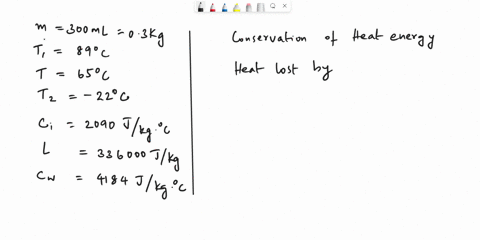 m = 300mL = 0.3Kg
T₁ = 89°C
T = 65°C
T₂ = -22°C
Ci = 2090 J/kg.°C
L = 336000 J/kg
Cw = 4184 J/kg.°C
Conservation of Heat energy
Heat lost by